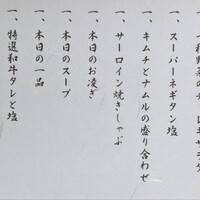 一、スーパーネギタン塩
一、キムチとナムルの盛り合わせ
一、サーロイン焼きしゃぶ
一、本日のお凌ぎ
一、本日のスープ
一、本日の一品
一、特選和牛タレと塩